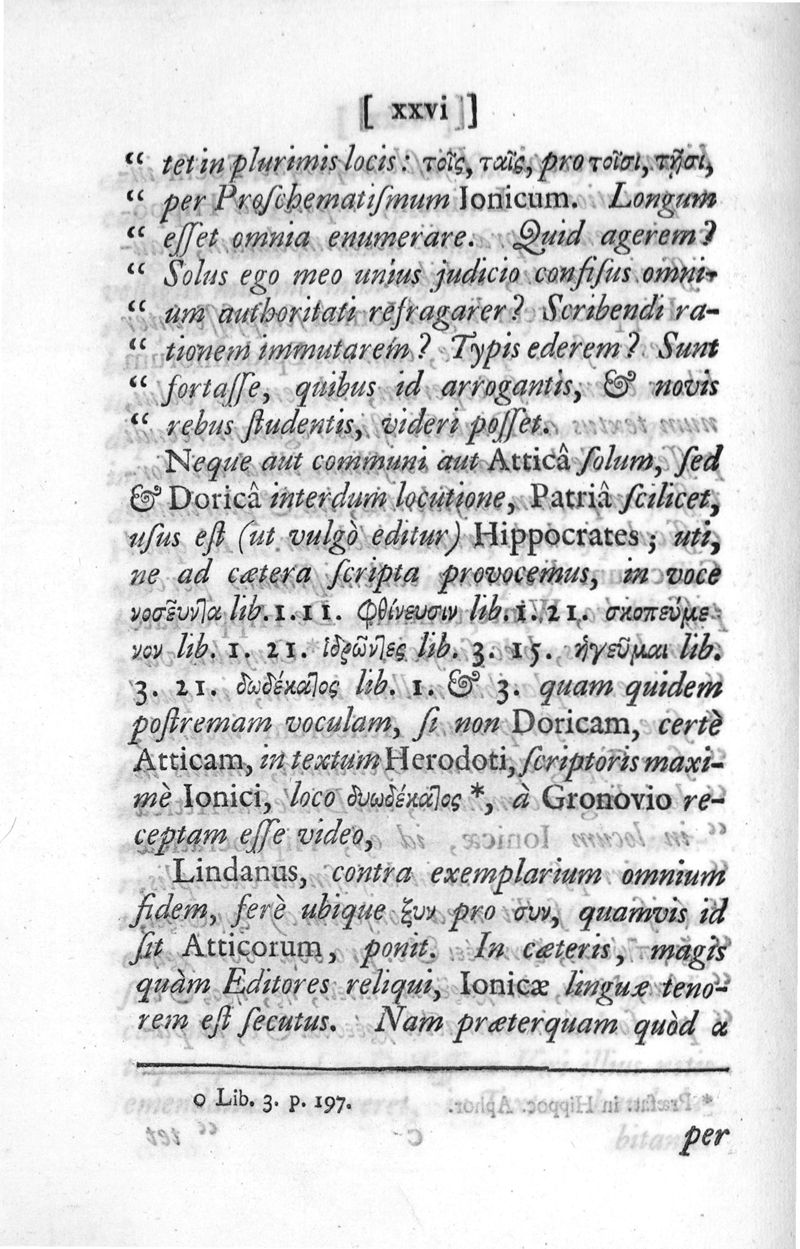 [ xxvi ]
“ tet in plurimis locis: τοῖς, ταῖς, pro τοῖσι, τῇσι,
“ per Proſchematiſmum Ionicum. Longum
“ eſſet omnia enumerare. Quid agerem?
“ Solus ego meo unius judicio confiſus omni-
“ um authoritati refragarer? Scribendi ra-
“ tionem immutarem? Typis ederem? Sunt
“ fortaſſe, quibus id arrogantis, & novis
“ rebus ſtudentis, videri poſſet.
Neque aut communi aut Atticâ ſolum, ſed
& Doricâ interdum locutione, Patriâ ſcilicet,
uſus eſt (ut vulgò editur) Hippocrates; uti,
ne ad cætera ſcripta provocemus, in voce
νοσεῦντα lib. 1. 11. φθίνευσιν lib. 1. 21. σκοπεύμε
νον lib. 1. 21. ἱδρῶντες lib. 3. 15. ἡγεῦμαι lib.
3. 21. δωδέκατος lib. 1. & 3. quam quidem
poſtremam voculam, ſi non Doricam, certè
Atticam, in textum Herodoti, ſcriptoris maxi-
mè Ionici, loco δυωδέκατος *, à Gronovio re-
ceptam eſſe video,
Lindanus, contra exemplarium omnium
fidem, ferè ubique ξυν pro συν, quamvis id
ſit Atticorum, ponit. In cæteris, magis
quàm Editores reliqui, Ionicæ linguæ teno-
rem eſt ſecutus. Nam præterquam quòd α
o Lib. 3. p. 197.
per